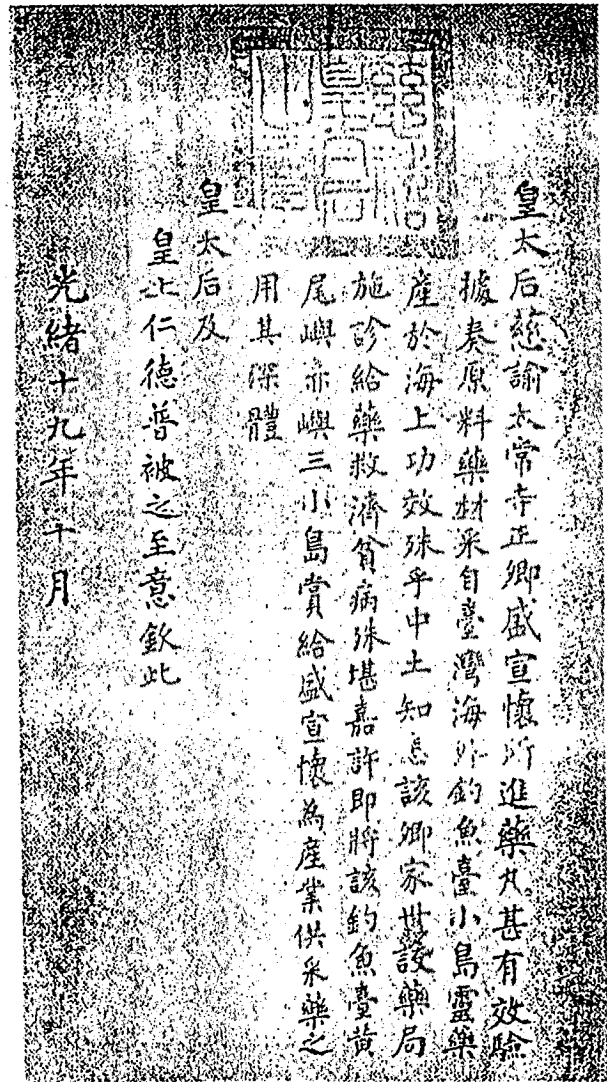 皇太后慈諭太常寺正卿盛宣懷所進藥丸甚有效驗
據奏原料藥材采自臺灣海外釣魚臺小島靈藥
產於海上功效殊乎中土知悉該卿家世設藥局
施診給藥救濟貧病殊堪嘉許即將該釣魚臺黃
尾嶼赤嶼三小島賞給盛宣懷為產業供采藥之
用其深體
皇太后及
皇上仁德普被之至意欽此
光緒十九年十月
慈禧
皇太后
之寶